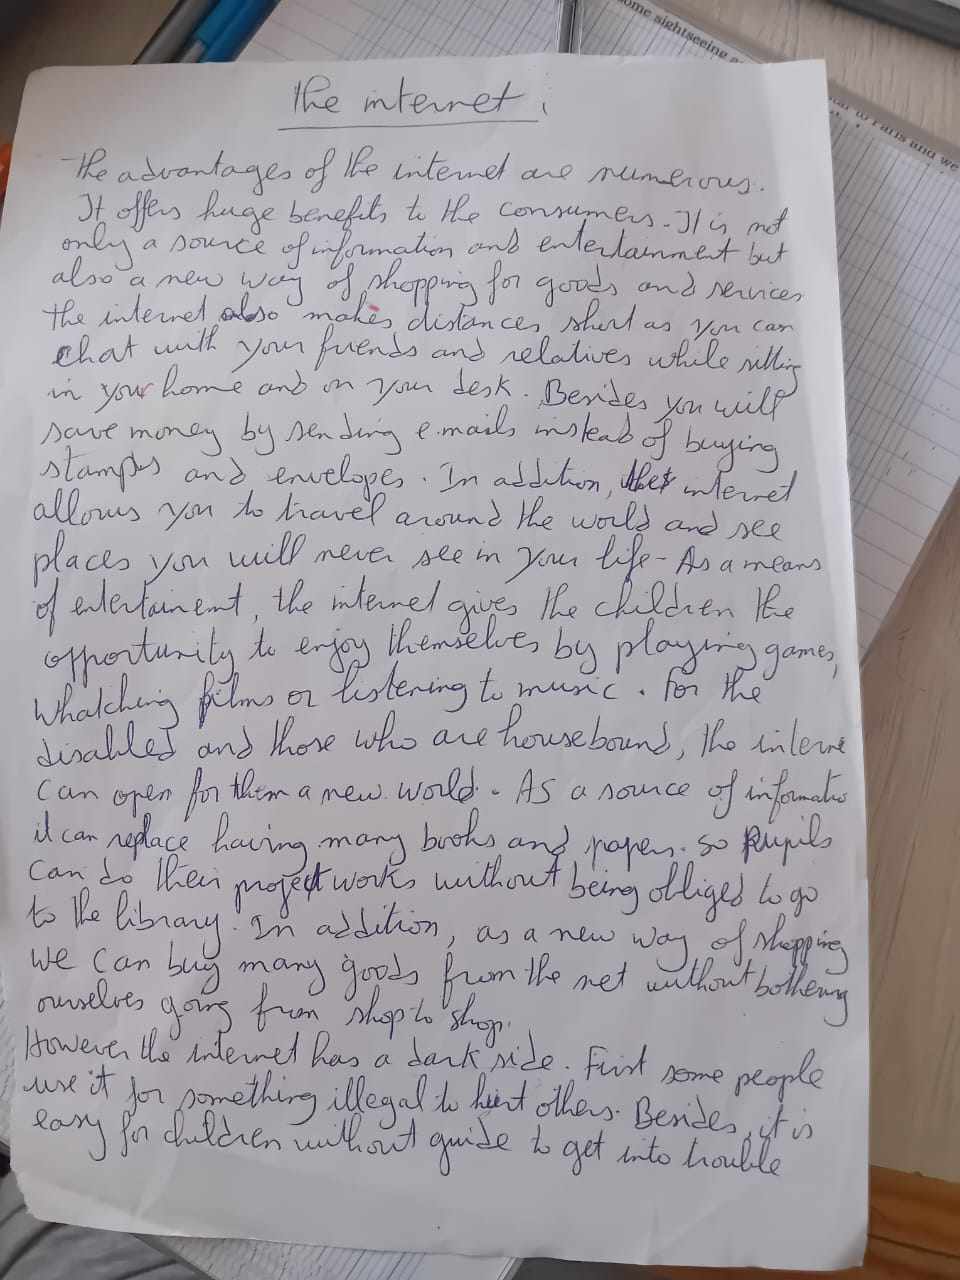 some sightseeing a
to Paris and we
The internet :
The advantages of the internet are numerous.
It offers huge benefits to the consumers. It is not
only a source of information and entertainment but
also a new way of shopping for goods and services
the internet also makes distances short as you can
chat with your friends and relatives while sitting
in your home and on your desk. Besides you will
save money by sending e.mails instead of buying
stamps and envelopes. In addition, the internet
allows you to travel around the world and see
places you will never see in your life - As a means
of entertainemt, the internet gives the children the
opportunity to enjoy themselves by playing games,
Whatching films or listening to music. For the
disabled and those who are housebound, the interne
can open for them a new world. As a source of informatio
it can replace having many books and papers. so Pupils
can do their project works without being obliged to go
to the library. In addition, as a new way of shopping
we can buy many goods from the net without bothering
ourselves going from shop to shop.
However the internet has a dark side. First some people
use it for something illegal to hurt others. Besides, it is
easy for children without guide to get into trouble